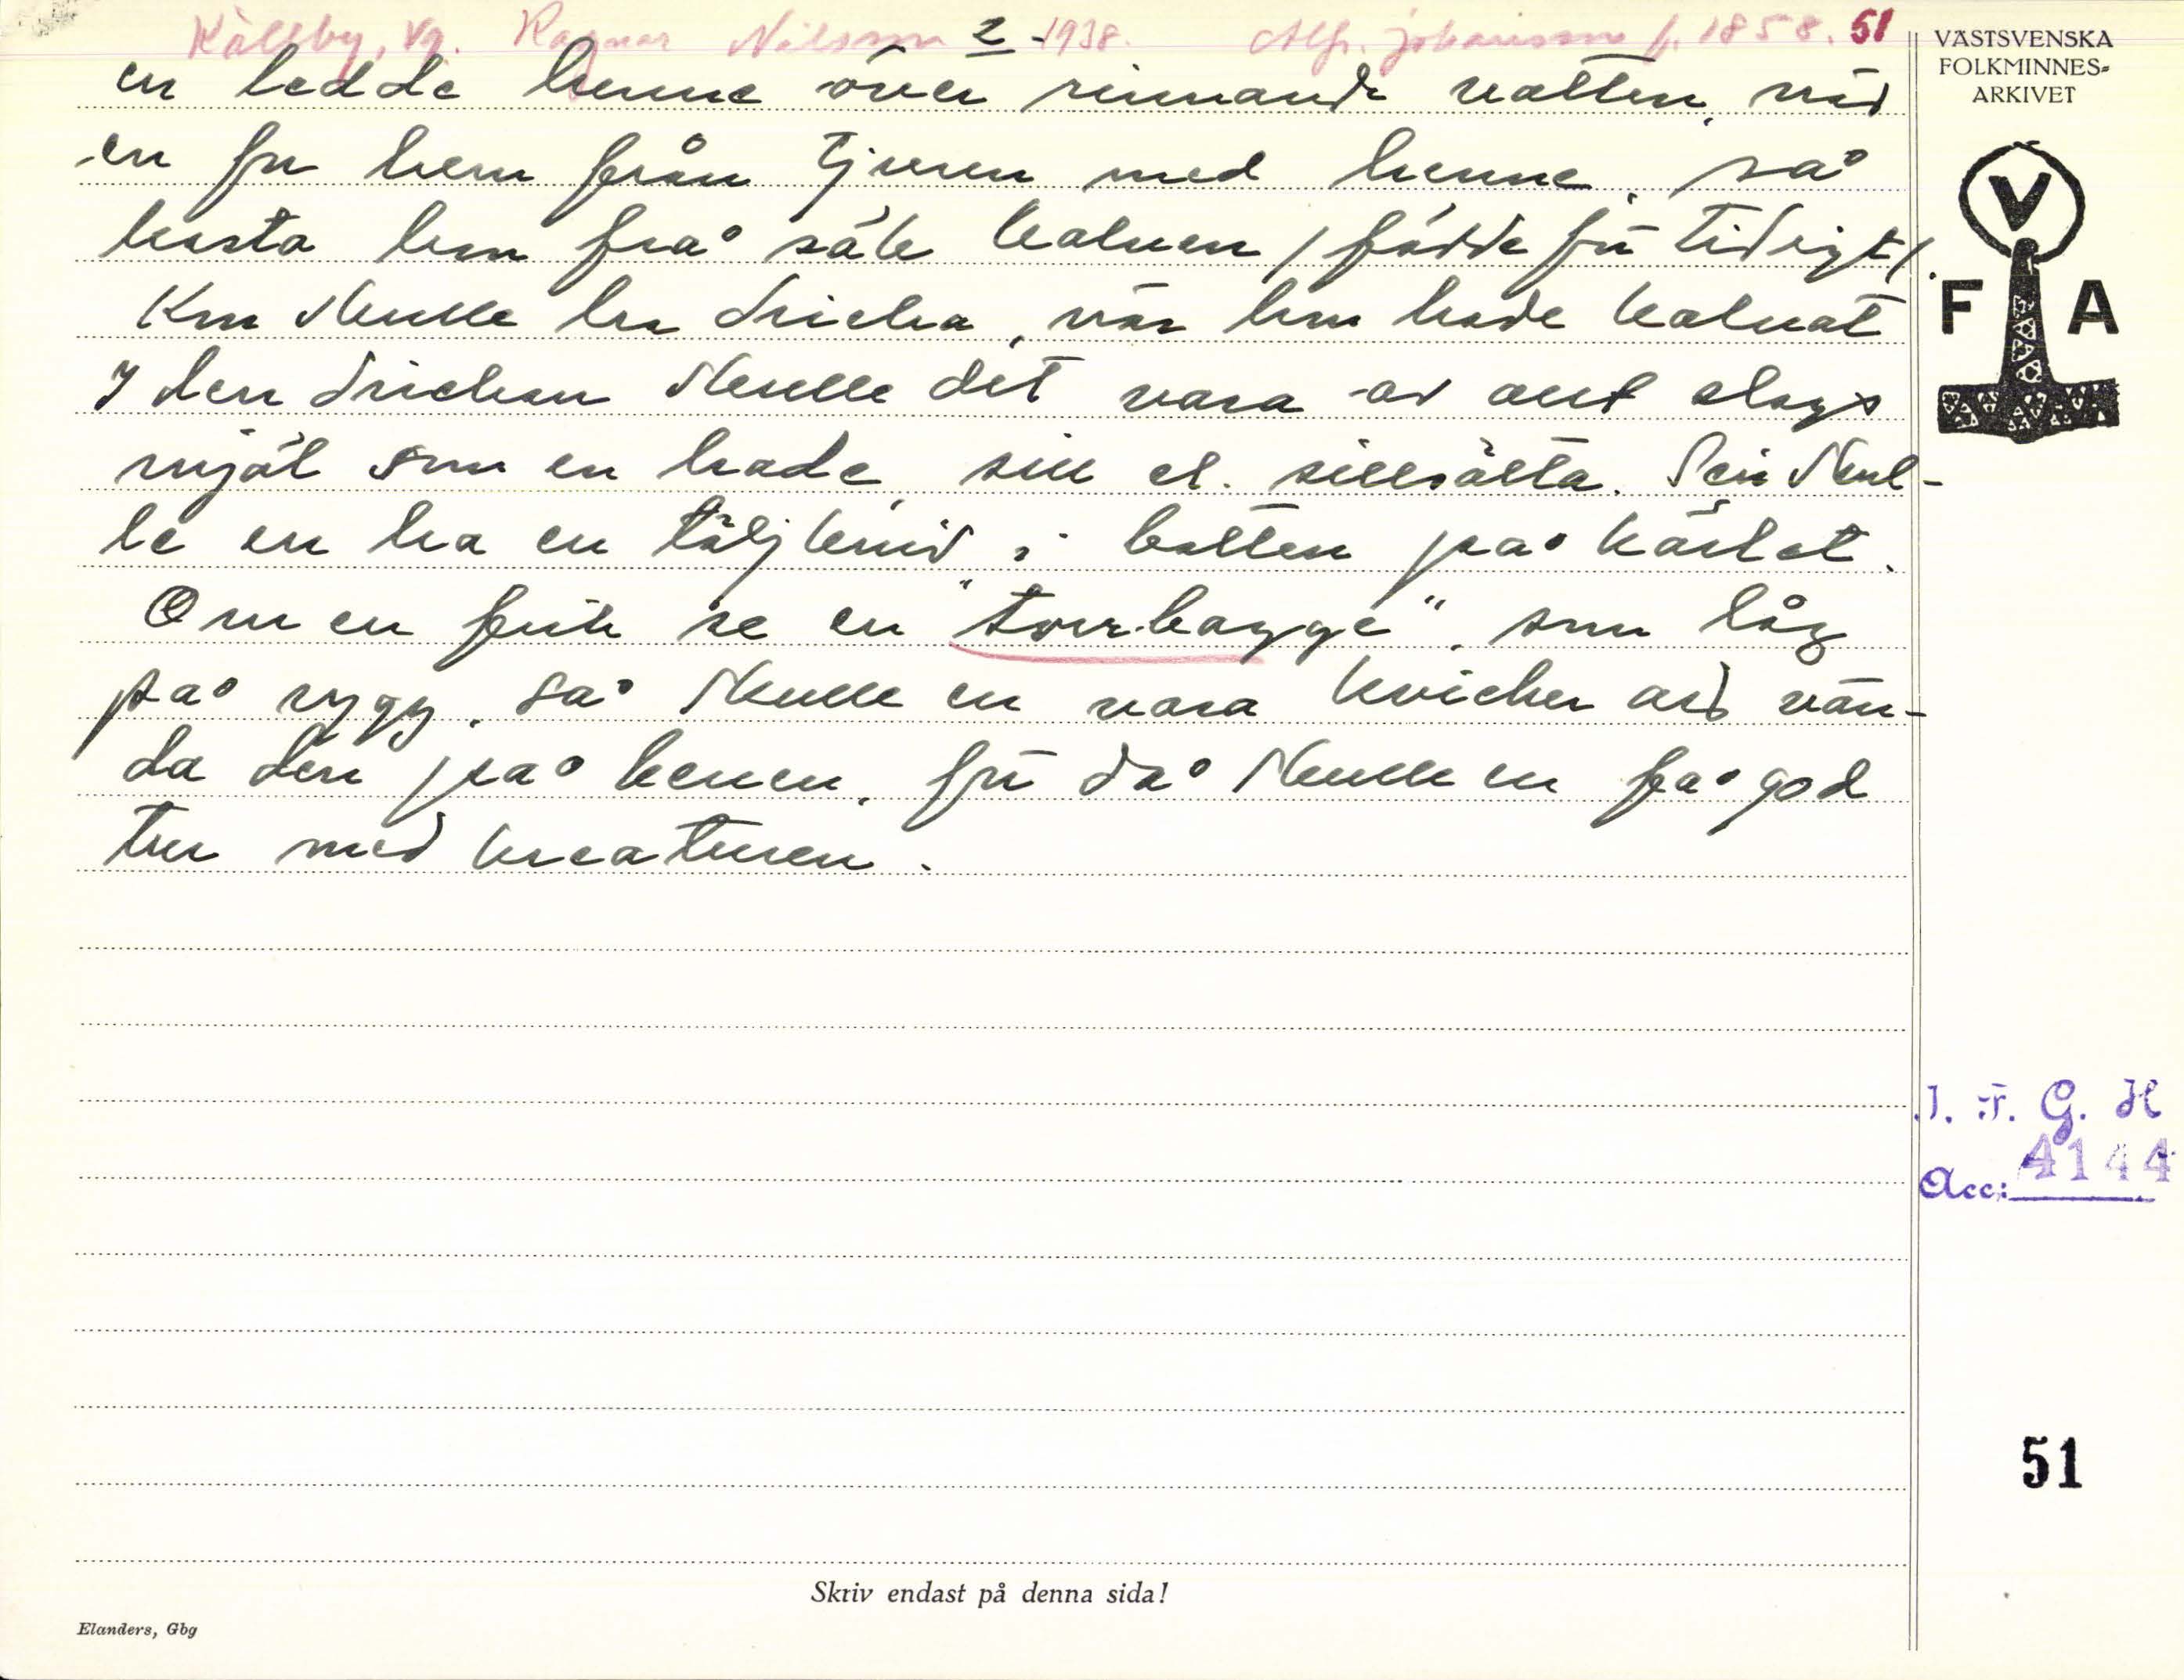 Källby, Vg. Ragnar Nilsson 2 - 1938. Alfr. Johansson f. 1858. 51
en ledde henne över rinnande vatten, när
en for hem från tjuren med henne, så
kasta hon frå säk kalven / födde för tidigt /.
Kon skulle ha dricka, när hon hade kalvat
I den drickan skulle det vara av allt slags
mjöl som en hade, sill el. sillsälta. Sen skul-
le en ha en täljkniv i botten på kärlet.
Om en fick se en "torrbagge", som låg
på rygg, så skulle en vara kvicker att vän-
da den på benen, för då skulle en få god
tur med kreaturen.
VÄSTSVENSKA
FOLKMINNES-
ARKIVET
V
F A
I. F. G. H
Acc: 4144
51
Skriv endast på denna sida!
Elanders, Gbg